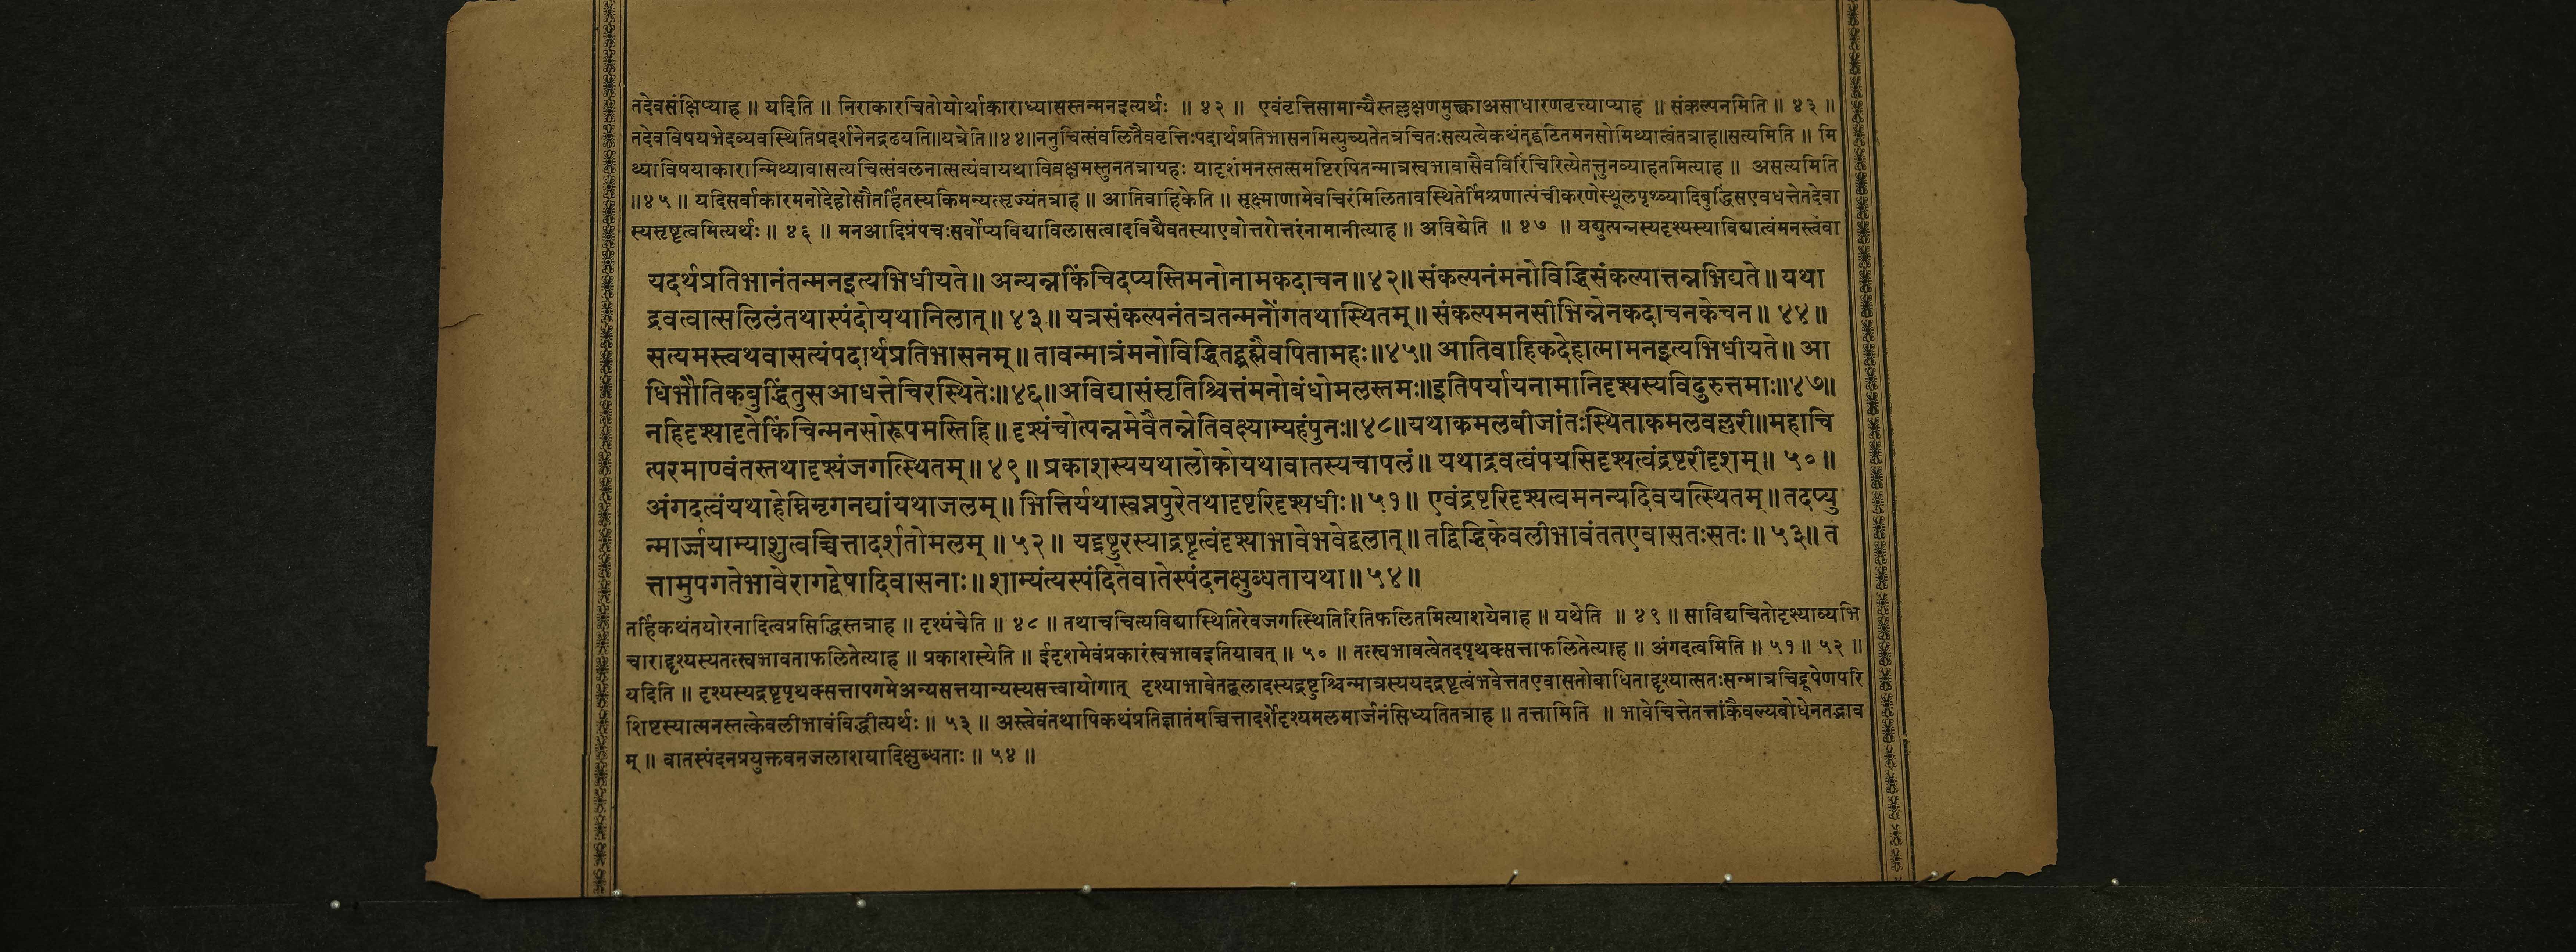 तदेवसंक्षिप्याह ॥ यदिति ॥ निराकारचितोयोर्थाकाराध्यासस्तन्मनइत्यर्थः ॥ ४२ ॥ एवंवृत्तिसामान्यैस्तल्लक्षणमुक्त्वाअसाधारणवृत्त्याप्याह ॥ संकल्पनमिति ॥ ४३ ॥
तदेवविषयभेदव्यवस्थितिप्रदर्शनेनद्रढयति॥यत्रेति॥४४॥ननुचित्संवलितैववृत्तिःपदार्थप्रतिभासनमित्युच्यतेतत्रचितःसत्यत्वेकथंतद्घटितमनसोमिथ्यात्वंतत्राह॥सत्यमिति ॥ मि
थ्याविषयाकारान्मिथ्यावासत्यचित्संवलनात्सत्यंवायथाविवक्षमस्तुनतत्राग्रहः यादृशंमनस्तत्समष्टिरपितन्मात्रस्वभावासैवविरिंचिरित्येतत्तुनव्याहतमित्याह ॥ असत्यमिति
॥४५॥ यदिसर्वाकारमनोदेहोसौतर्हितस्यकिमन्यत्सृज्यंतत्राह ॥ आतिवाहिकेति ॥ सूक्ष्माणामेवचिरंमिलितावस्थितेर्मिश्रणात्पंचीकरणेस्थूलपृथ्व्यादिबुद्धिंसएवधत्तेतदेवा
स्यस्रष्टृत्वमित्यर्थः ॥ ४६ ॥ मनआदिप्रंपचःसर्वोप्यविद्याविलासत्वादविद्यैवतस्याएवोत्तरोत्तरंनामानीत्याह ॥ अविद्येति ॥ ४७ ॥ यद्युत्पन्नस्यदृश्यस्याविद्यात्वंमनस्त्वंवा
यदर्थप्रतिभानंतन्मनइत्यभिधीयते॥ अन्यन्नकिंचिदप्यस्तिमनोनामकदाचन॥४२॥ संकल्पनंमनोविद्धिसंकल्पात्तन्नभिद्यते॥ यथा
द्रवत्वात्सलिलंतथास्पंदोयथानिलात्॥ ४३॥ यत्रसंकल्पनंतत्रतन्मनोंगतथास्थितम्॥ संकल्पमनसीभिन्नेनकदाचनकेचन॥ ४४॥
सत्यमस्त्वथवासत्यंपदार्थप्रतिभासनम्॥ तावन्मात्रंमनोविद्धितद्ब्रह्मैवपितामहः॥४५॥ आतिवाहिकदेहात्मामनइत्यभिधीयते॥ आ
धिभौतिकबुद्धिंतुसआधत्तेचिरस्थितेः॥४६॥अविद्यासंसृतिश्चित्तंमनोबंधोमलस्तमः॥इतिपर्यायनामानिदृश्यस्यविदुरुत्तमाः॥४७॥
नहिदृश्यादृतेकिंचिन्मनसोरूपमस्तिहि॥ दृश्यंचोत्पन्नमेवैतन्नेतिवक्ष्याम्यहंपुनः॥४८॥यथाकमलबीजांतःस्थिताकमलवल्लरी॥महाचि
त्परमाण्वंतस्तथादृश्यंजगत्स्थितम्॥ ४९॥ प्रकाशस्ययथालोकोयथावातस्यचापलं॥ यथाद्रवत्वंपयसिदृश्यत्वंद्रष्टरीदृशम्॥ ५०॥
अंगदत्वंयथाहेम्निमृगनद्यांयथाजलम्॥ भित्तिर्यथास्वप्नपुरेतथाद्रष्टरिदृश्यधीः॥ ५१॥ एवंद्रष्टरिदृश्यत्वमनन्यदिवयत्स्थितम्॥ तदप्यु
न्मार्ज्जयाम्याशुत्वच्चित्तादर्शतोमलम्॥ ५२॥ यद्द्रष्टुरस्याद्रष्टृत्वंदृश्याभावेभवेद्बलात्॥ तद्विद्धिकेवलीभावंततएवासतःसतः॥ ५३॥ त
त्तामुपगतेभावेरागद्वेषादिवासनाः॥ शाम्यंत्यस्पंदितेवातेस्पंदनक्षुब्धतायथा॥ ५४॥
तर्हिकथंतयोरनादित्वप्रसिद्धिस्तत्राह ॥ दृश्यंचेति ॥ ४८ ॥ तथाचचित्यविद्यास्थितिरेवजगत्स्थितिरितिफलितमित्याशयेनाह ॥ यथेति ॥ ४९ ॥ साविद्यचितोदृश्याव्यभि
चाराद्दृश्यस्यतत्स्वभावताफलितेत्याह ॥ प्रकाशस्येति ॥ ईदृशमेवंप्रकारंस्वभावइतियावत् ॥ ५० ॥ तत्स्वभावत्वेतदपृथक्सत्ताफलितेत्याह ॥ अंगदत्वमिति ॥ ५१ ॥ ५२ ॥
यदिति ॥ दृश्यस्यद्रष्टृपृथक्सत्तापगमेअन्यसत्तयान्यस्यसत्त्वायोगात् दृश्याभावेतद्बलादस्यद्रष्टुश्चिन्मात्रस्ययदद्रष्टृत्वंभवेत्ततएवासतोबाधिताद्दृश्यात्सतःसन्मात्रचिद्रूपेणपरि
शिष्टस्यात्मनस्तत्केवलीभावंविद्धीत्यर्थः ॥ ५३ ॥ अस्त्वेवंतथापिकथंप्रतिज्ञातंमच्चित्तादर्शेदृश्यमलमार्जनंसिध्यतितत्राह ॥ तत्तामिति ॥ भावेचित्तेतत्तांकैवल्यबोधेनतद्भाव
म् ॥ वातस्पंदनप्रयुक्तवनजलाशयादिक्षुब्धताः ॥ ५४ ॥